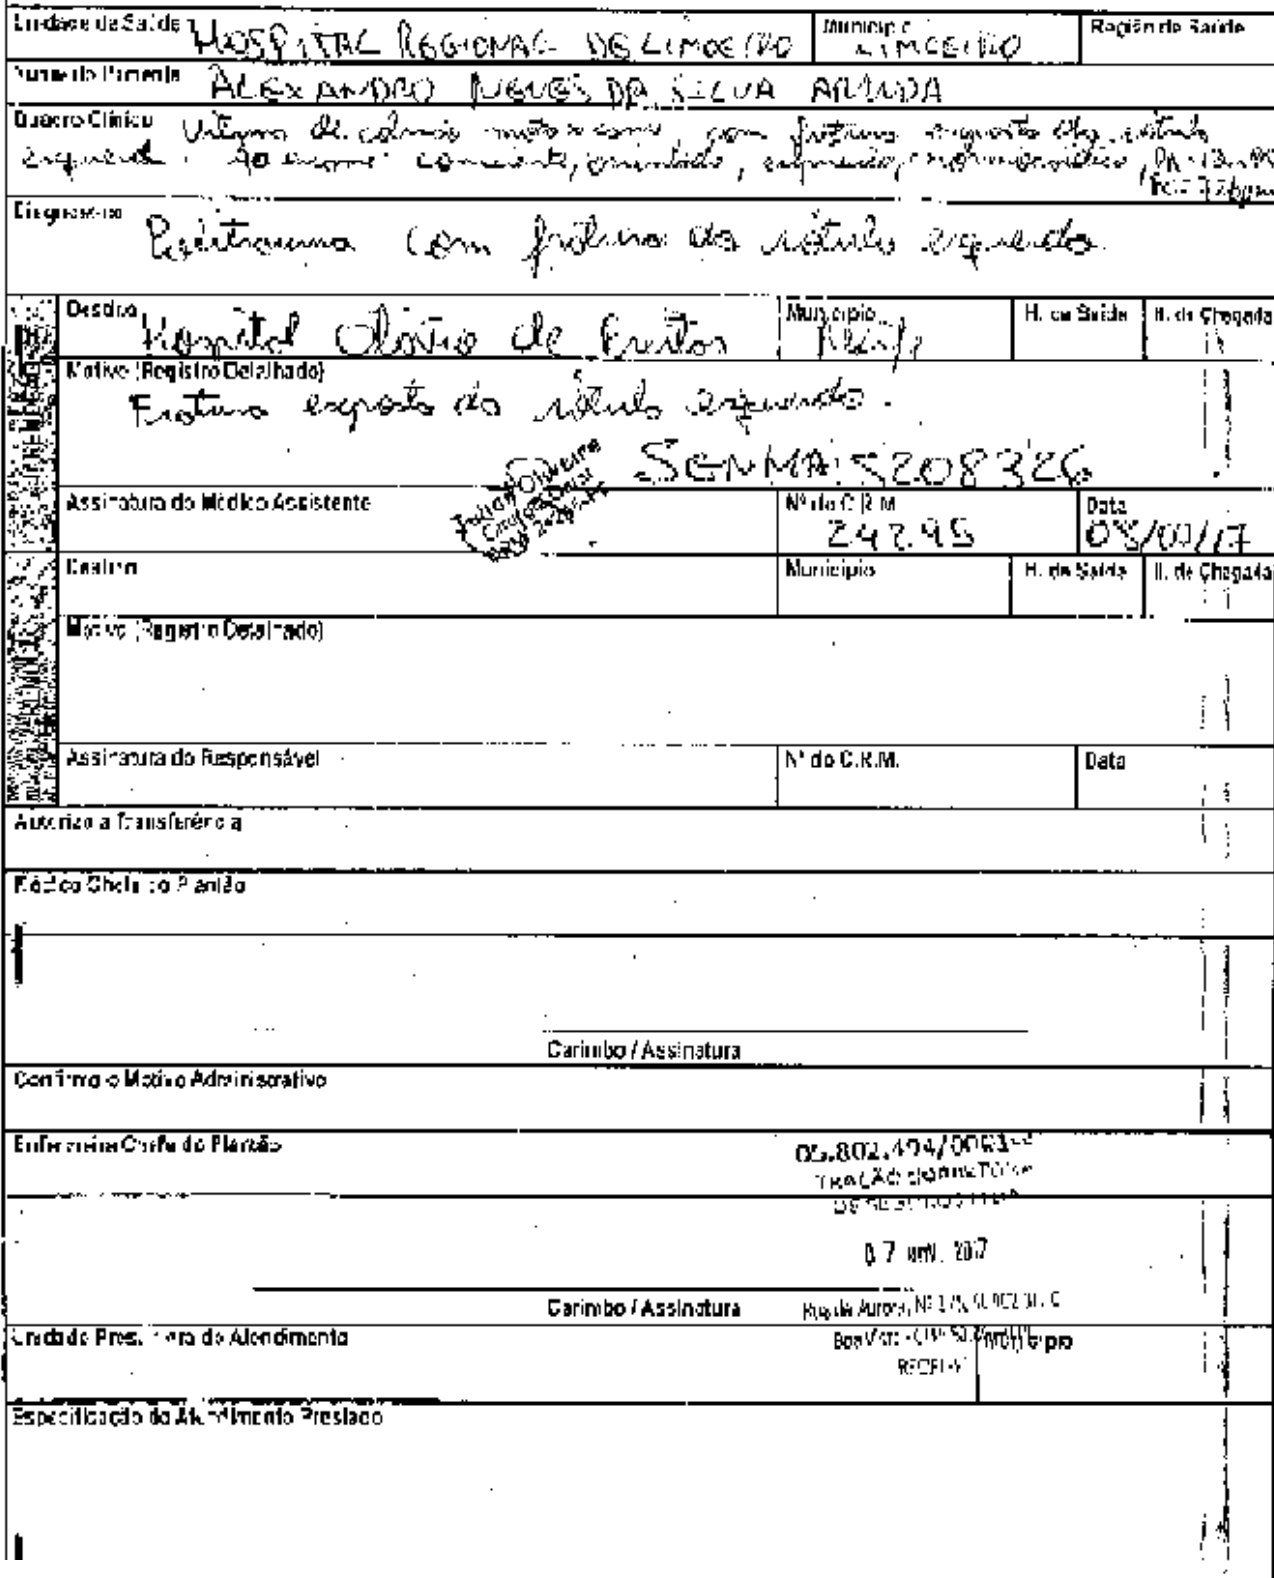 Unidade de Saúde HOSPITAL REGIONAL DE LIMOEIRO Município LIMOEIRO Região de Saúde
Nome do Paciente ALEXANDRO NEVES DA SILVA ARRUDA
Quadro Clínico Vítima de colisão moto x carro, com fratura exposta da rótula
esquerda. Ao exame: consciente, orientado, eupneico, normocárdico, PA
Diagnóstico
Politrauma com fratura da rótula esquerda.
Destino Hospital Otávio de Freitas Município Recife H. de Saída H. de Chegada
Motivo (Registro Detalhado)
Fratura exposta da rótula esquerda.
SENHA: 5208326
Assinatura do Médico Assistente Nº do C.R.M. 24295 Data
Destino Município H. de Saída H. de Chegada
Motivo (Registro Detalhado)
Assinatura do Responsável Nº do C.R.M. Data
Autorizo a Transferência
Médico Chefe do Plantão
Carimbo / Assinatura
Confirmo o Motivo Administrativo
Enfermeira Chefe do Plantão
Carimbo / Assinatura
Unidade Prestadora do Atendimento Município
Especificação do Atendimento Prestado